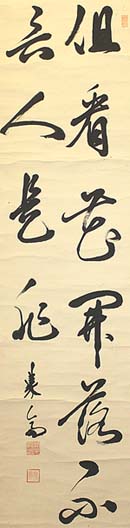 但看花開落不
言人是非